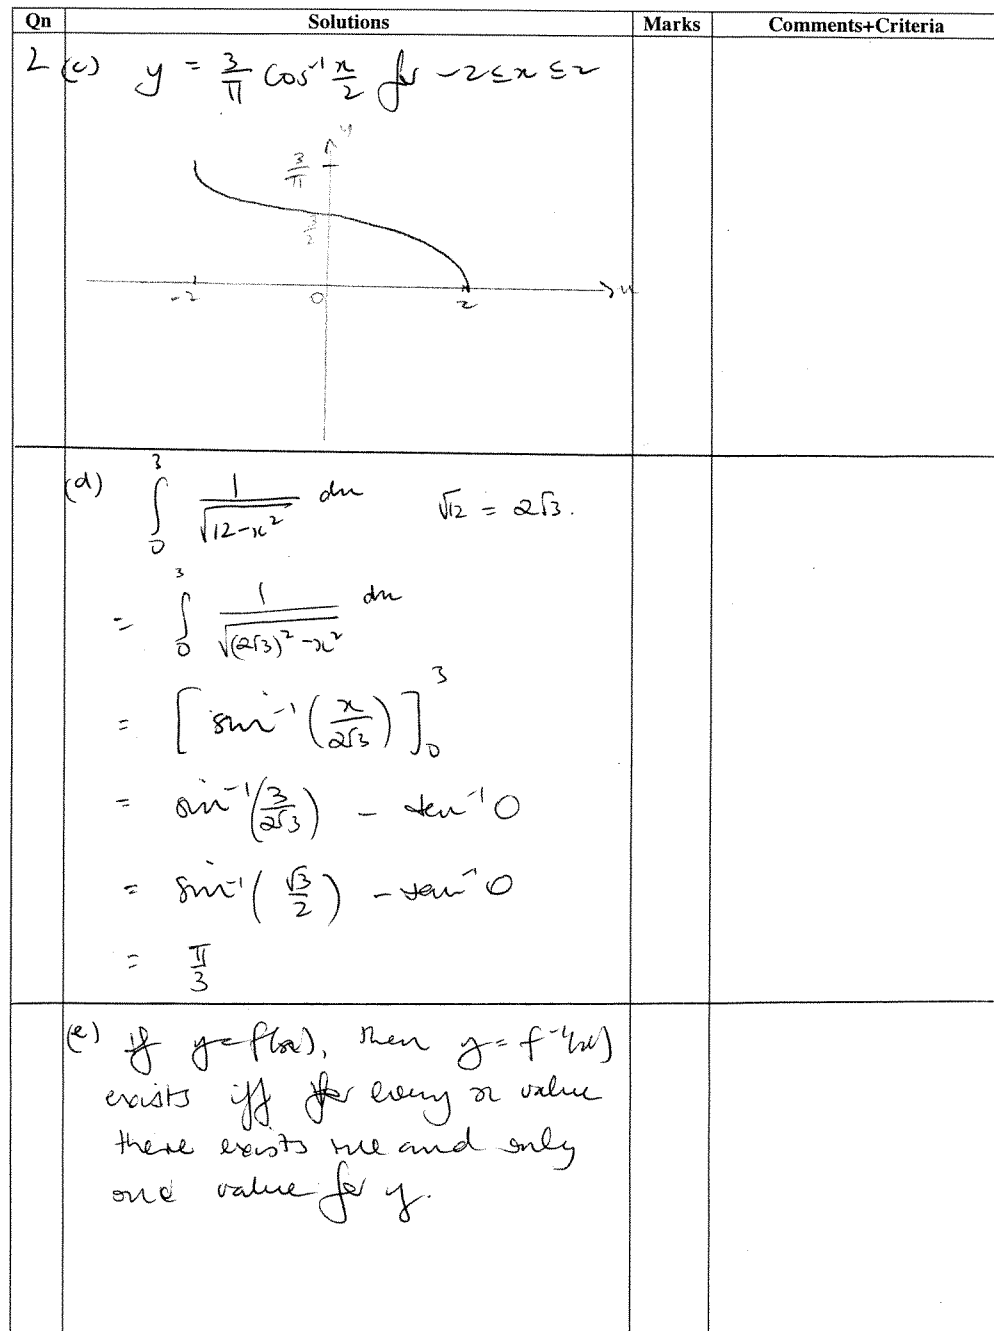 Qn Solutions Marks Comments+Criteria
2 (c) y = 3/π cos⁻¹ x/2 for -2≤x≤2
y
3/π
3/2
-2 0 2 x
(d) ∫₀³ 1/√(12-x²) dx √12 = 2√3.
= ∫₀³ 1/√((2√3)²-x²) dx
= [sin⁻¹(x/2√3)]₀³
= sin⁻¹(3/2√3) - tan⁻¹ 0
= sin⁻¹(√3/2) - tan⁻¹ 0
= π/3
(e) if y=f(x), then y=f⁻¹(x)
exists iff for every x value
there exists one and only
one value for y.